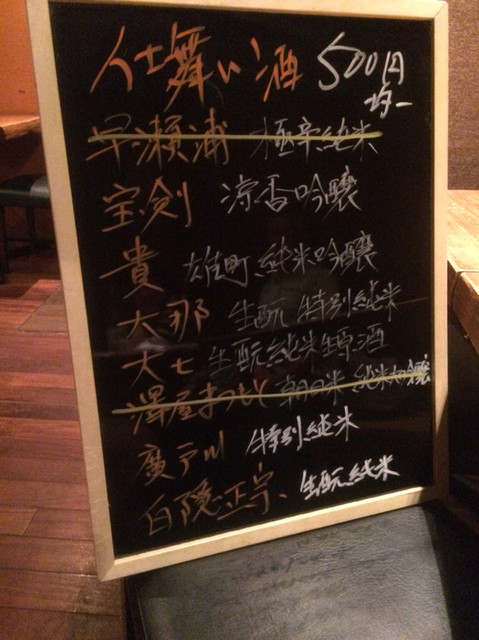 仕舞い酒 500円
均一
早瀬浦 極辛純米
宝剣 涼香吟醸
貴 雄町純米吟醸
大那 生酛 特別純米
大七 生酛純米原酒
澤屋まつもと 朝日米 純米吟醸
廣戸川 特別純米
白隠正宗、生酛純米